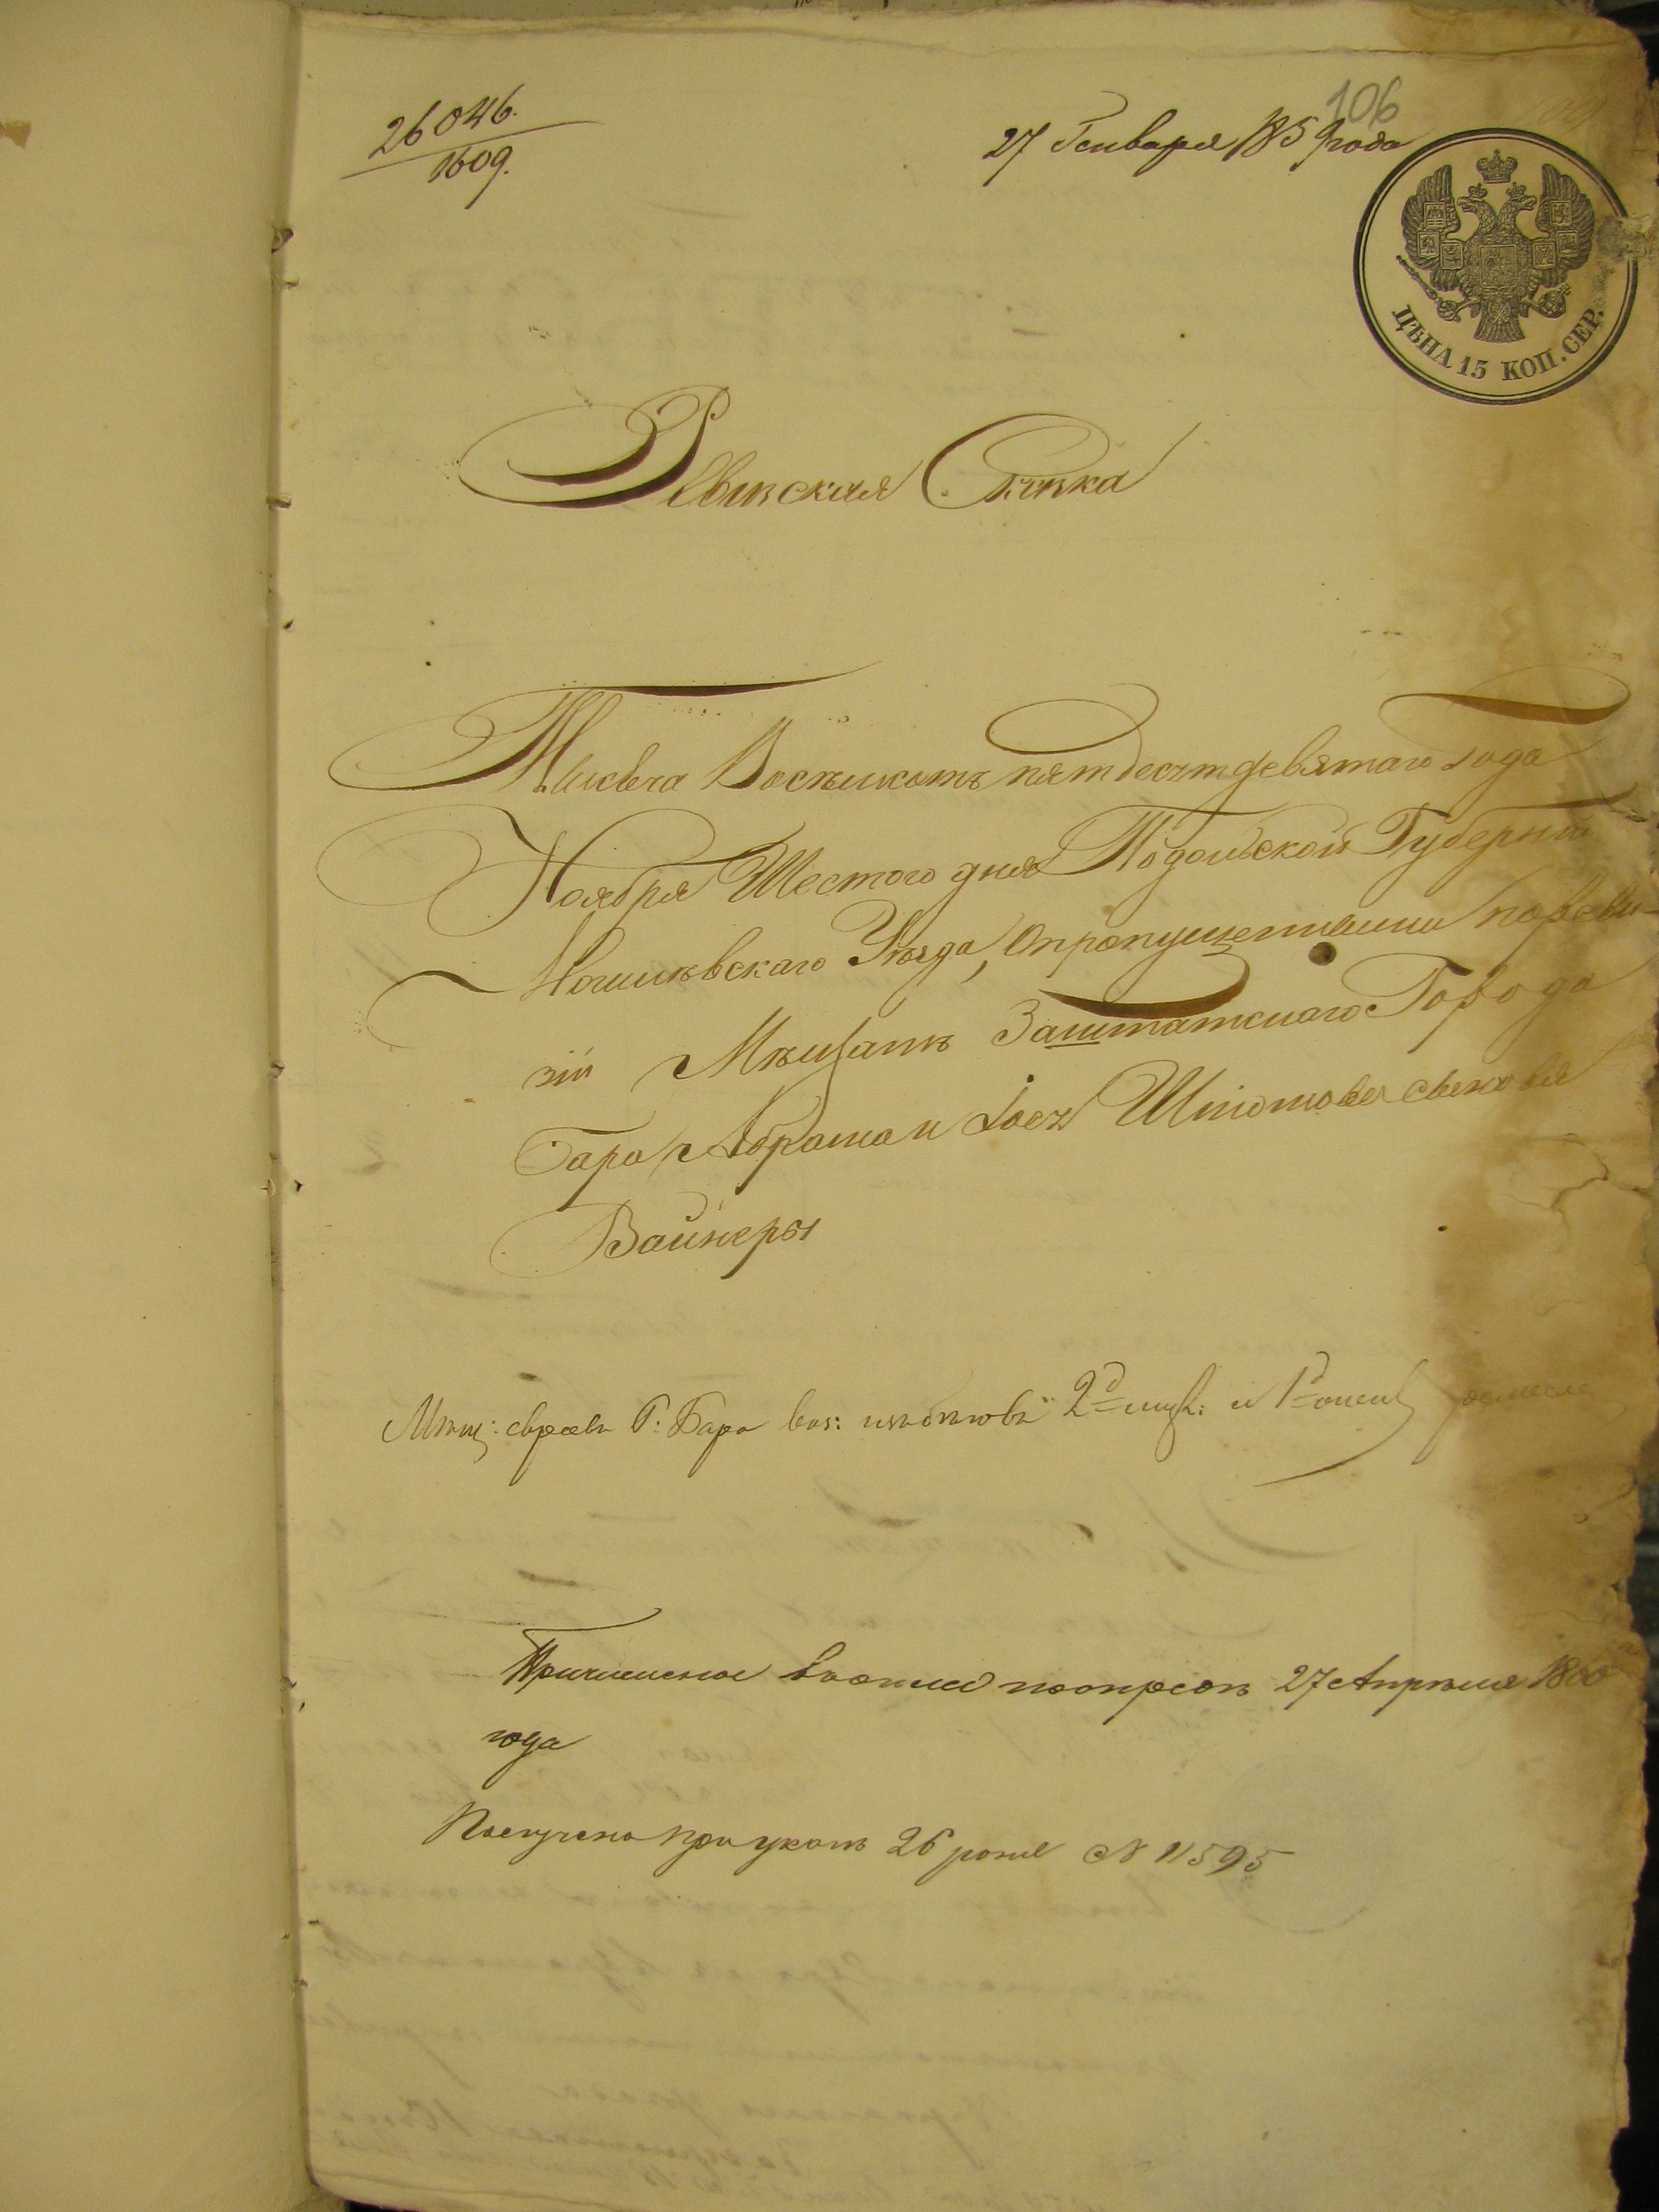 106
26046.
1609.
27 Генваря 1859 года
ЦѢНА 15 КОП. СЕР.
Ревизская Скаска
Тысяча Восемьсотъ пятдесятдевятаго года
Ноября Шестого дня Подольской Губерніи
Могилевскаго Уѣзда, опропущенными поревы-
зіи Мѣщанъ Заштатнаго Города
Бара Абрама и Іося Шлiомовы сыновья
Вайнеры
Мѣщ: евреевъ Г: Бара 2д и 1д
27 Апрѣля 1860
года
Получено при указѣ 26 № 11595